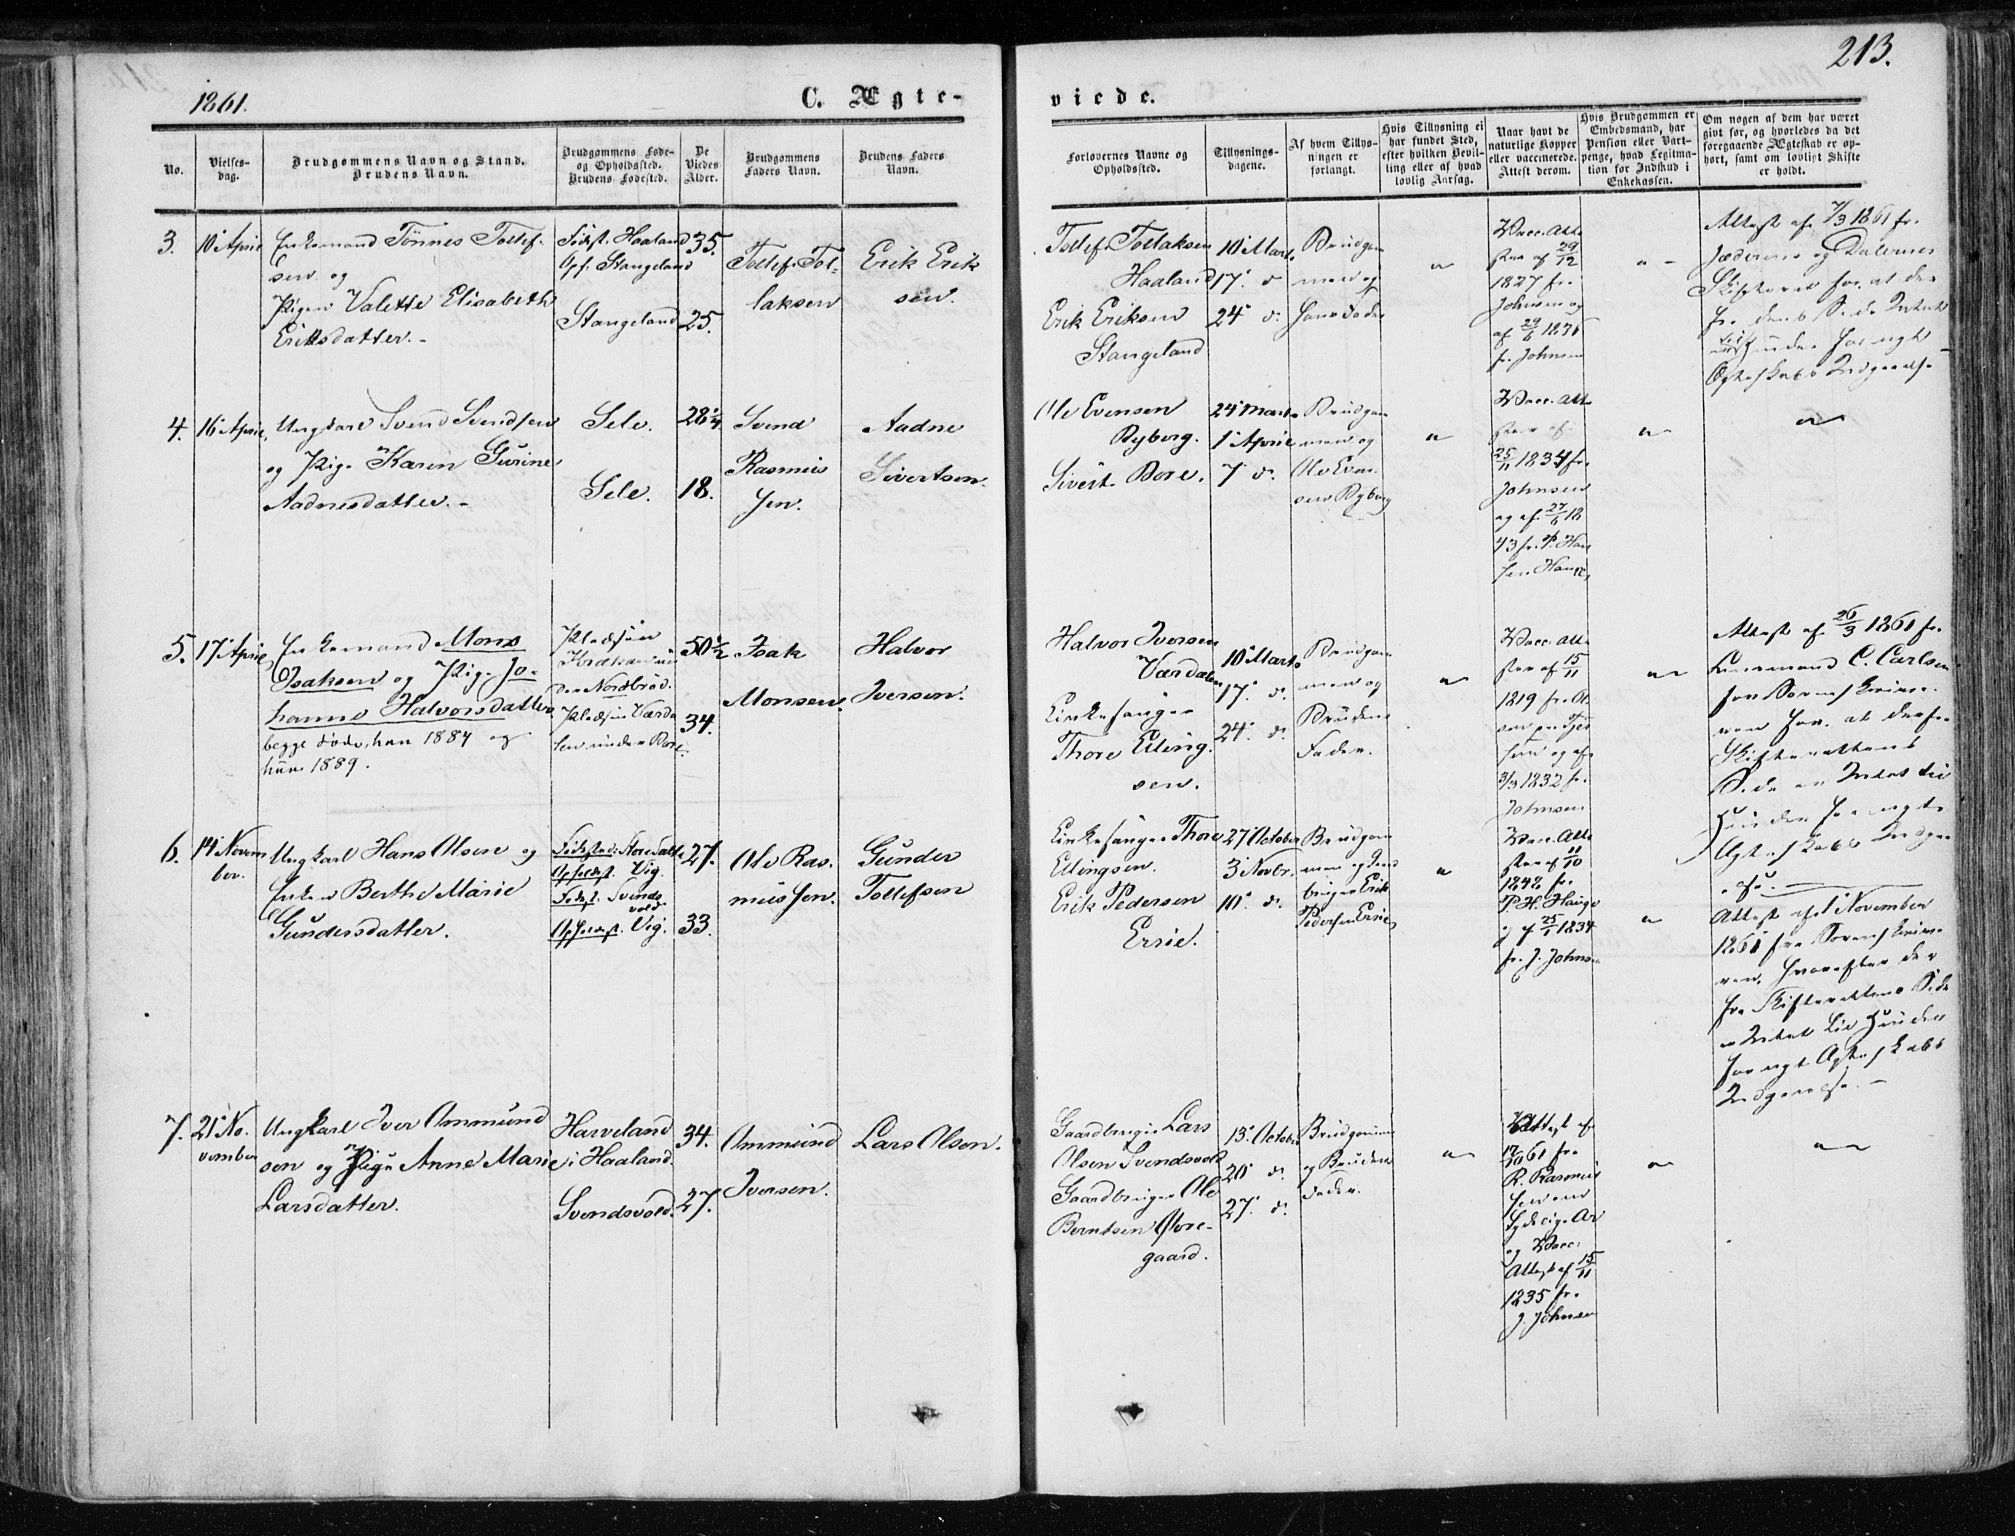 1861.
C. Ægte-
viede.
213.
No.
Vielses-
dag.
Brudgommens Navn og Stand.
Brudens Navn.
Brudgommens Føde-
og Opholdssted.
Brudens Fødested.
De
Viedes
Alder.
Brudgommens
Faders Navn.
Brudens Faders
Navn.
Forlovernes Navne og
Opholdssted.
Tillysnings-
dagene.
Af hvem Tillys-
ningen er
forlangt.
Hvis Tillysning ei
har fundet Sted,
efter hvilken Bevil-
ling eller af hvad
lovlig Aarsag.
Naar havt de
naturlige Kopper
eller vaccinerede.
Attest derom.
Hvis Brudgommen er
Embedsmand, har
Pension eller Vart-
penge, hvad Legitima-
tion for Indskud i
Enkekassen.
Om nogen af dem har været
givt før, og hvorledes da det
foregaaende Ægteskab er op-
hørt, samt om lovligt Skifte
er holdt.
3.
10 April
Enkemand Tönnes Tollef-
sen og
Pigen Valette Elisabeth
Eriksdatter.
Födst. Haaland
Opf. Stangeland
Stangeland
35.
25.
Tollef Tol-
laksen
Erik Erik
sen.
Tollef Tollaksen
Haaland
Erik Eriksen
Stangeland
10 Marts
17. d
24 d.
Brudgom
men og
hans Fader
Vacc. Atte
ster af 29/12
1827 fr.
Johnsen og
af 29/6 1836
fr. Johnsen
Attest af 7/3 1861 fr.
Jæderens og Dalernes
Skifteret for, at der
fr. dens Side Intet
er til Hinder for nyt
Ægteskabs Indgaaelse
4.
16 April
Ungkarl Svend Svendsen
og Pige Karen Gurine
Aadnesdatter.
Sele.
Sele.
28 1/4
18.
Svend
Rasmus
sen.
Aadne
Sivertsen.
Ole Evensen
Ryberg.
Sivert Bore.
24 Marts
1 April
7 d.
Brudgom
men og
Ole Even
sen Ryberg
Vacc. Atte
ster af
25/11 1834 fr.
Johnsen
og af 27/6 18
43 fr. P. Han
sen Hauge
5.
17 April
Enkemand Mons
Isaksen og Pige Jo-
hanne Halvorsdatter
begge döde, han 1884 og
hun 1889.
Pladsen
under Nordbröd.
Pladsen Værda
len under Bore
50 1/2
34.
Isak
Monsen.
Halvor
Iversen.
Halvor Iversen
Værdalen
Kirkesanger
Thore Elling-
sen.
10 Marts
17. d.
24. d.
Brudgom
men og
Brudens
Fader.
Vacc. Atte
ster af 15/11
1819 fr.
og af
3/3 1832 fr.
Johnsen
Attest af 26/3 1861 fr.
Lensmand C. Carlsen
for Sorenskrive-
ren for, at der fr.
Skifterettens
Side er Intet til
Hinder for nyt
Ægteskabs Indgaa
else.
6.
14 Novem
ber.
Ungkarl Hans Olsen og
Enken Berthe Marie
Gundersdatter.
Födested:
Opholdst. Vig.
Fødst. Svends
vold.
Opholdst. Vig.
27.
33.
Ole Ras-
mussen.
Gunder
Tollefsen
Kirkesanger Thore
Ellingsen.
Erik Pedersen
Ersie.
27 October
3 Novbr.
10. d.
Brudgom
men og Gaard
bruger Erik
Pedersen Ersie
Vacc. Atte
ster af 11/10
1842 fr.
P. H. Hauge
og af 25/1 1834
fr. J. Johnsen
Attest af 1 November
1861 fra Sorenskrive-
ren, hvorefter der
fra Skifterettens Side
er Intet til Hinder
for nyt Ægteskabs
Indgaaelse.
7.
21 No-
vember
Ungkarl Iver Ommund
sen og Pige Anne Marie
Larsdatter.
Harveland
i Haaland
Svendsvold.
34.
27.
Ommund
Iversen.
Lars Olsen.
Gaardbruger Lars
Olsen Svendsvold
Gaardbruger Ole
Berntsen Øvre-
gaard.
13. October
20 d.
27. d.
Brudgommen
og Brudens
Fader.
Attest af
17/10 61 fr.
R. Rasmus
sen om
tydelige Ar
og Vacc.
Attest af 15/11
1835 fr.
J. Johnsen